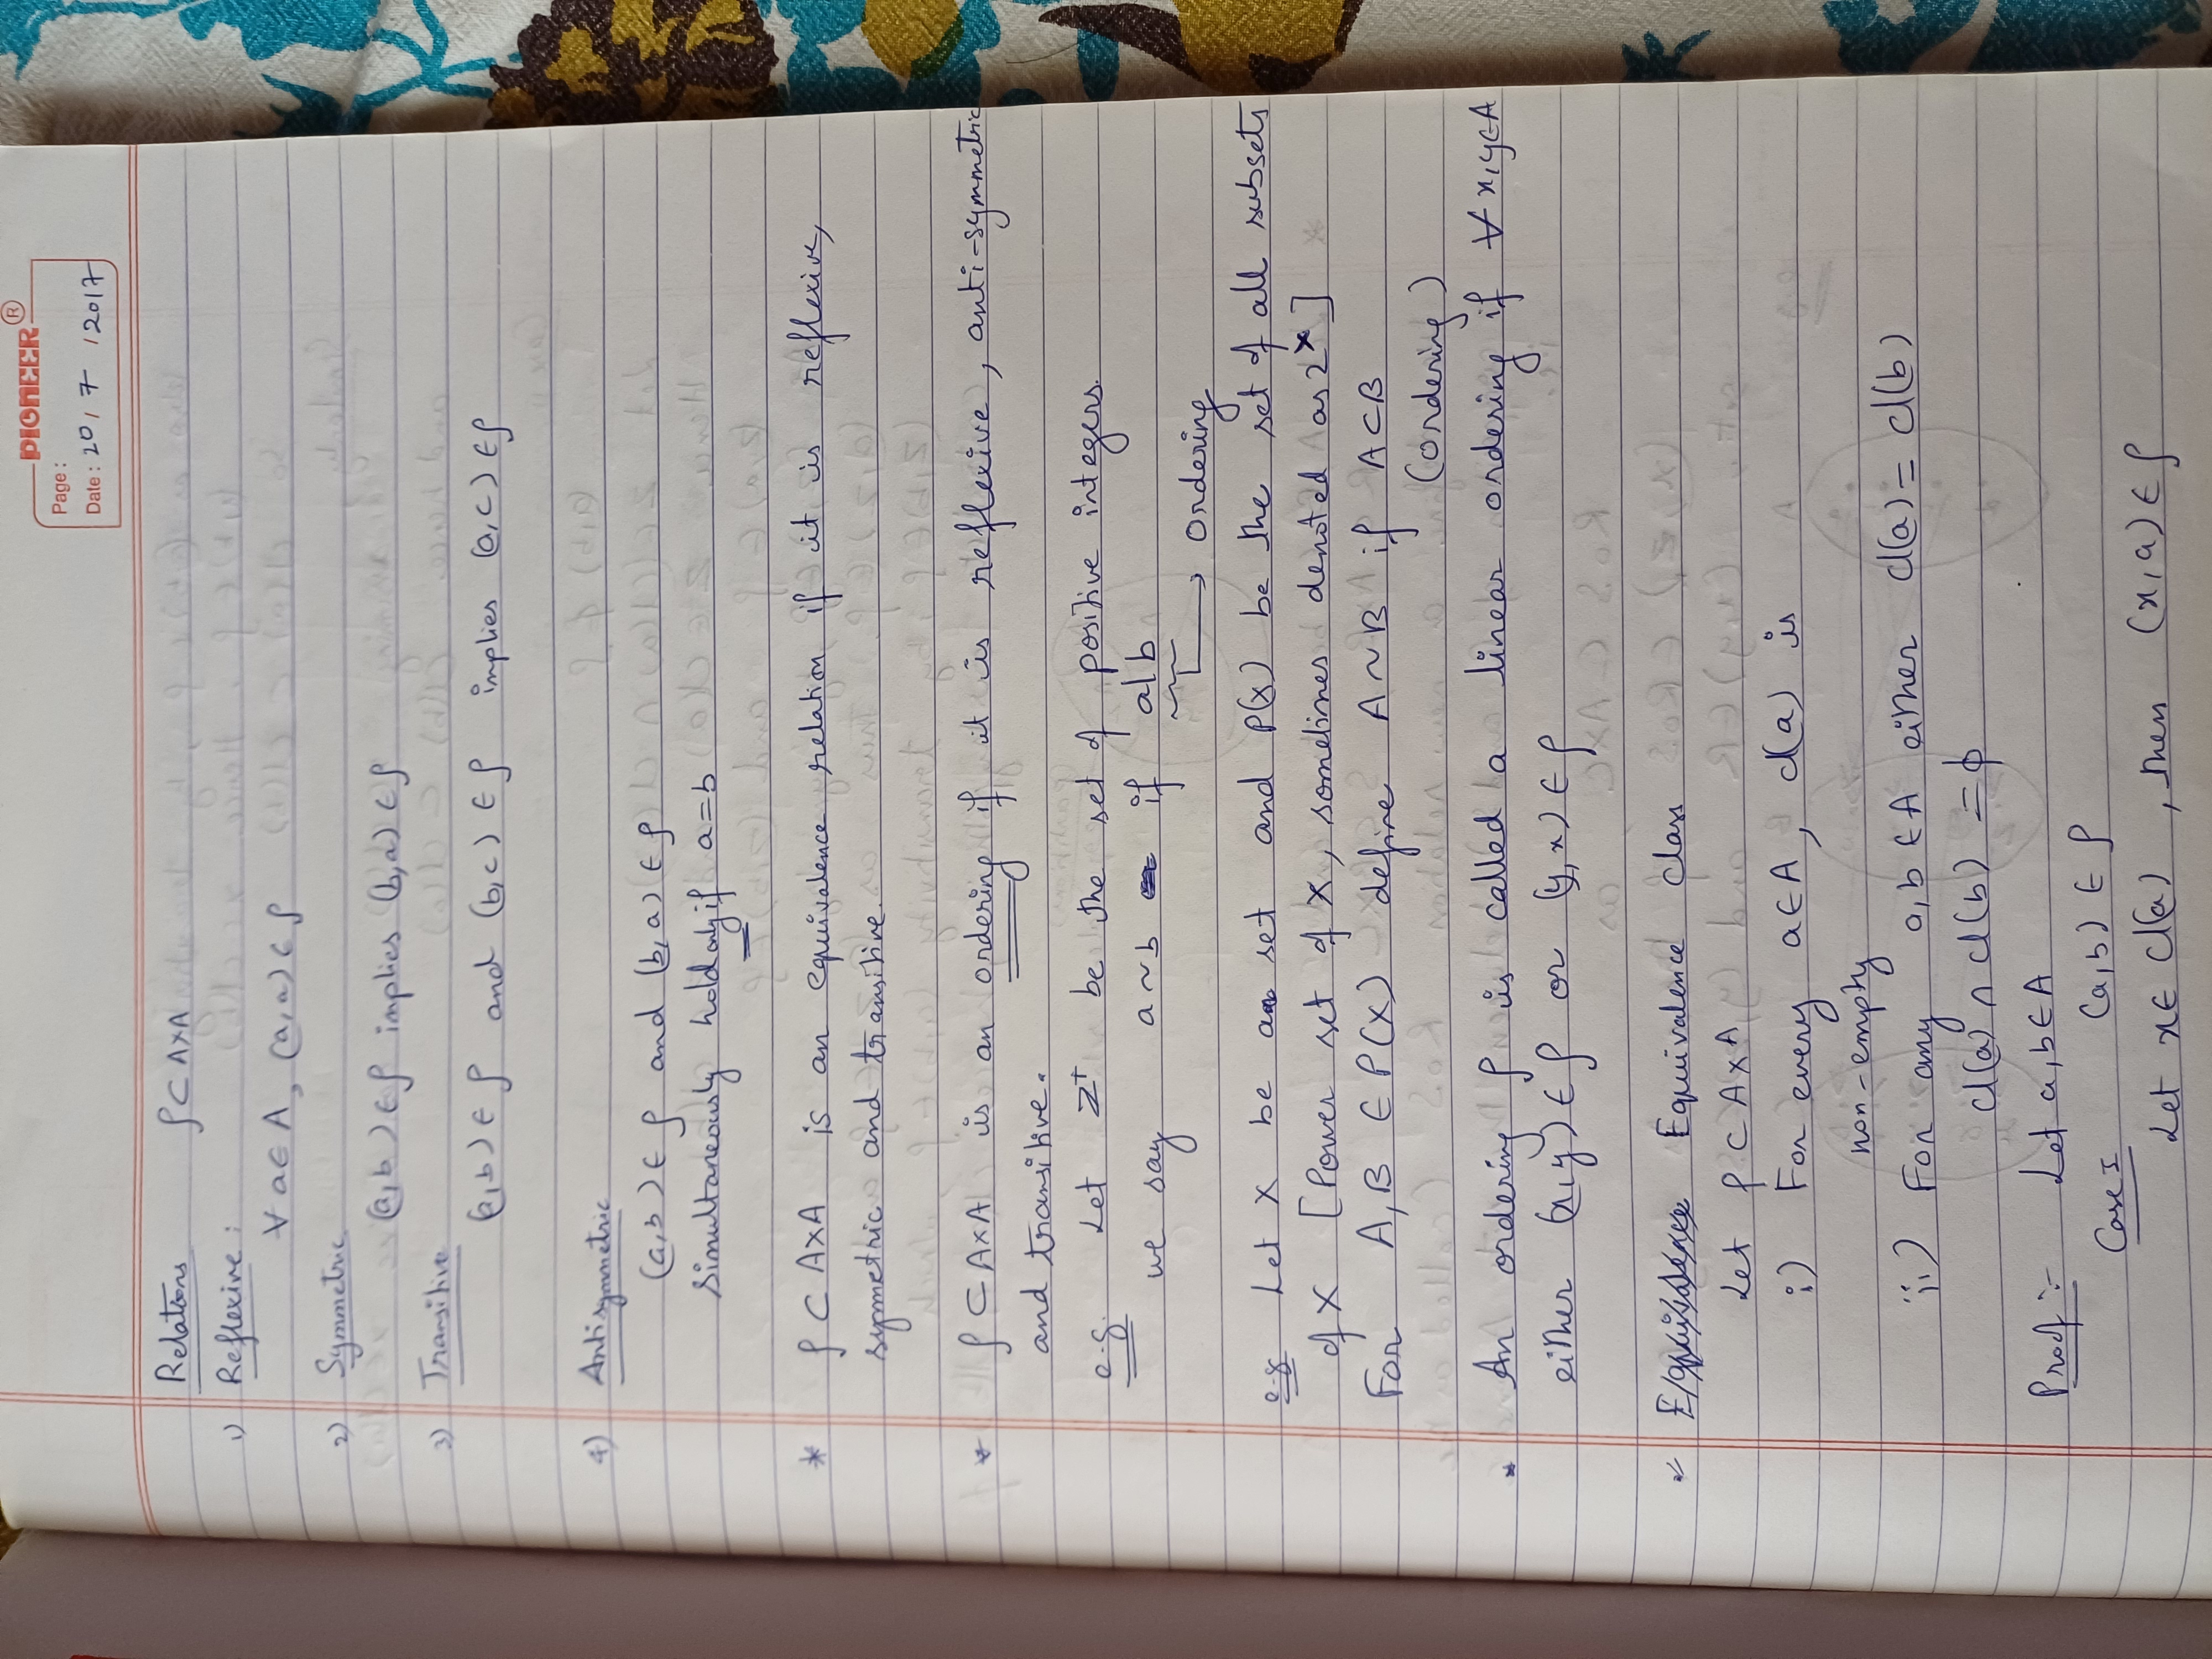 PIONEER ®
Page :
Date : 20 / 7 / 2017
Relations ρ ⊂ A×A
1) Reflexive :
∀ a∈A, (a,a) ∈ ρ
2) Symmetric
(a,b) ∈ ρ implies (b,a) ∈ ρ
3) Transitive
(a,b) ∈ ρ and (b,c) ∈ ρ implies (a,c) ∈ ρ
4) Antisymmetric
(a,b) ∈ ρ and (b,a) ∈ ρ
simultaneously hold only if a=b
* ρ ⊂ A×A is an equivalence relation if it is reflexive,
symmetric and transitive.
* ρ ⊂ A×A is an ordering if it is reflexive, anti-symmetric
and transitive.
e.g. Let Z⁺ be the set of positive integers.
we say a ~ b if a|b
→ ordering
e.g. Let X be a set and P(X) be the set of all subsets
of X [Power set of X, sometimes denoted as 2ˣ]
For A, B ∈ P(X) define A ~ B if A ⊂ B
(ordering)
* An ordering ρ is called a linear ordering if ∀ x,y∈A
either (x,y) ∈ ρ or (y,x) ∈ ρ
* Equivalence Equivalence class
Let ρ ⊂ A×A
i) For every a∈A, cl(a) is
non-empty
ii) For any a,b ∈ A either cl(a) = cl(b)
cl(a) ∩ cl(b) = ϕ
Proof :- Let a,b∈A
Case I (a,b) ∈ ρ
Let x ∈ cl(a), then (x,a) ∈ ρ